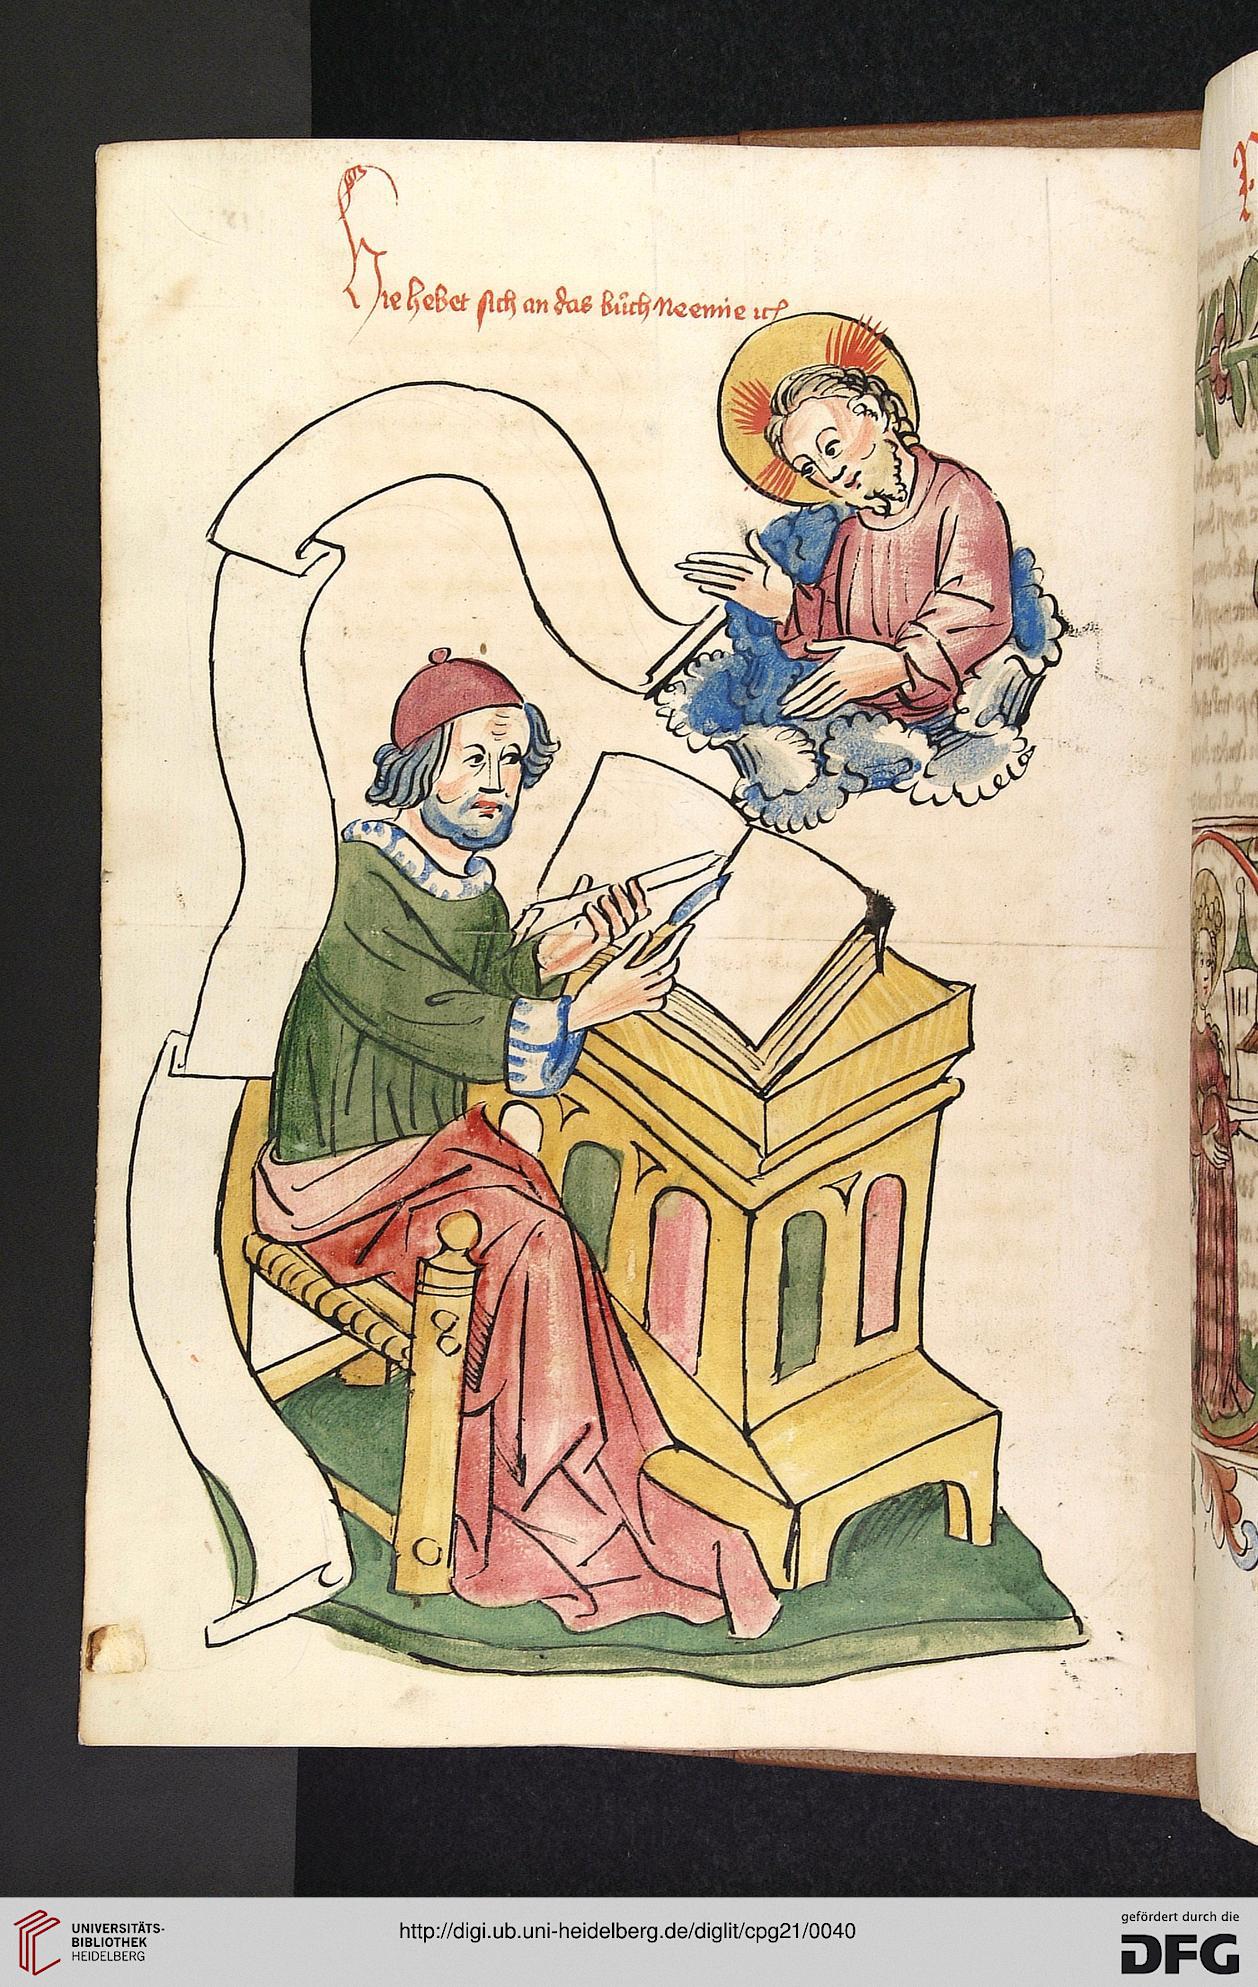 Hie hebet sich an das bůch Neemie ꝛcͭ
UNIVERSITÄTS-
BIBLIOTHEK
HEIDELBERG
http://digi.ub.uni-heidelberg.de/diglit/cpg21/0040
gefördert durch die
DFG